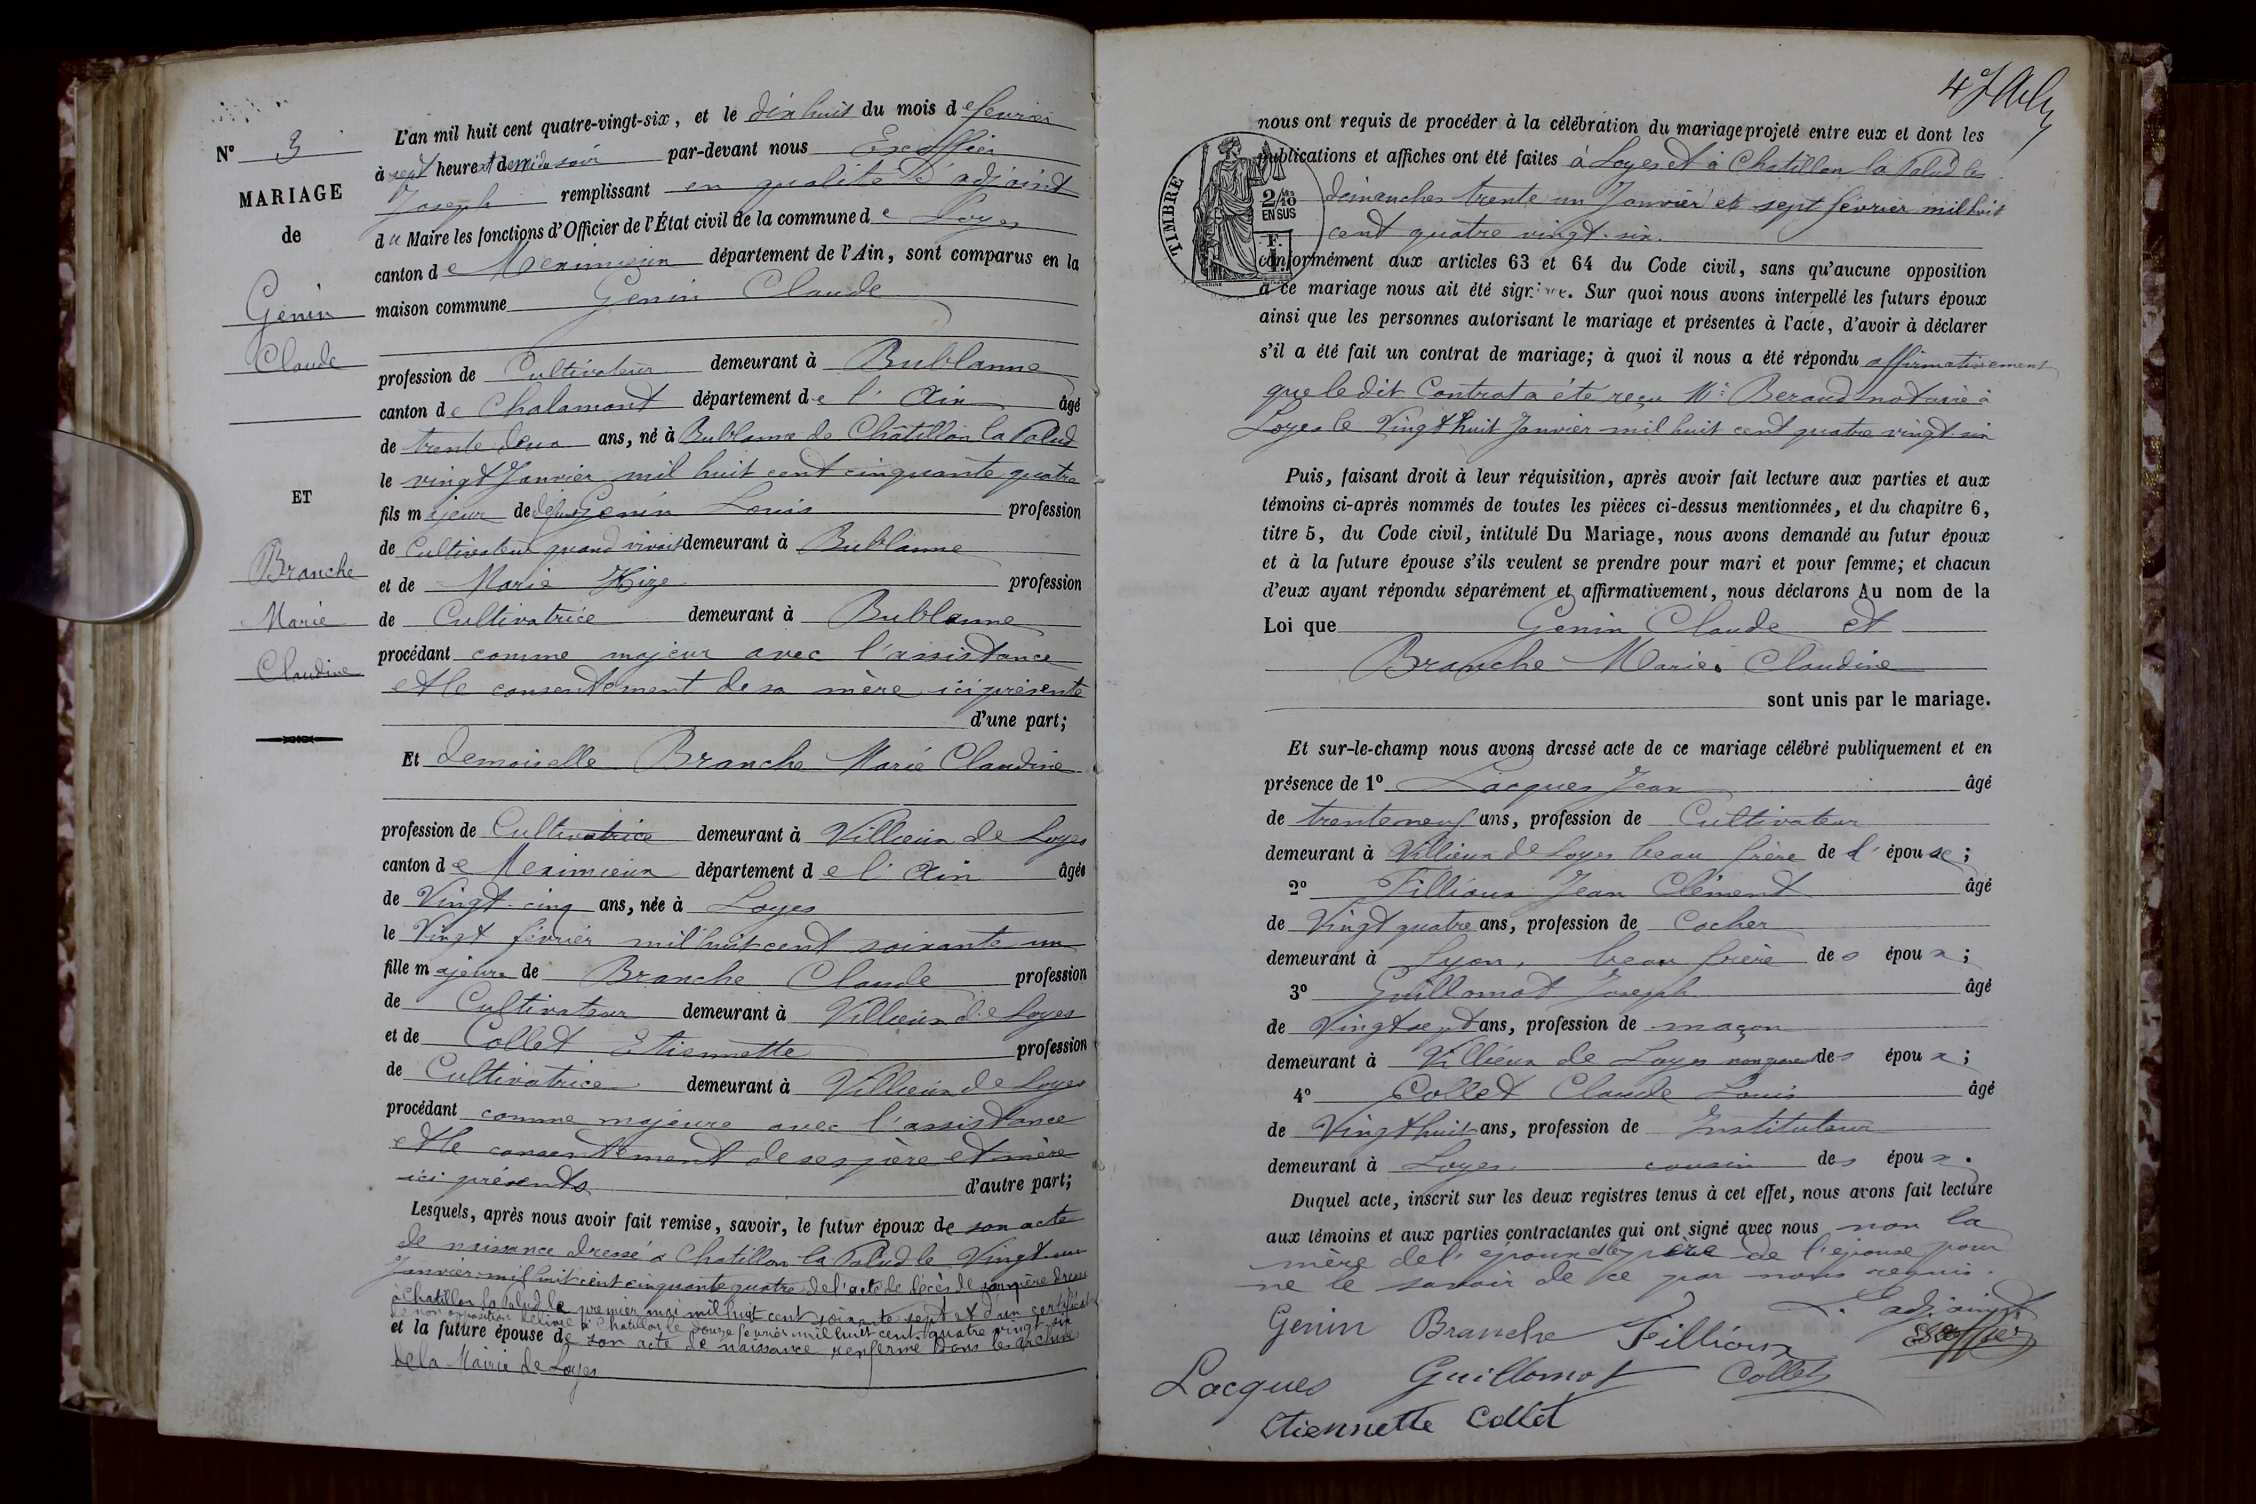 N° 3
MARIAGE
de
Genin
Claude
ET
Branche
Marie
Claudine
L'an mil huit cent quatre-vingt-six, et le dix huit du mois de fevrier
à sept heures et demi du soir par-devant nous Escoffier
Joseph remplissant en qualité d'adjoint
du Maire les fonctions d'Officier de l'État civil de la commune de Loyes
canton de Meximieux département de l'Ain, sont comparus en la
maison commune Genin Claude
profession de Cultivateur demeurant à Bublanne
canton de Chalamont département de l'Ain âgé
de trente deux ans, né à Bublanne de Châtillon la Palud
le vingt Janvier mil huit cent cinquante quatre
fils majeur de défunt Genin Louis profession
de Cultivateur quand vivait demeurant à Bublanne
et de Marie profession
de Cultivatrice demeurant à Bublanne
procédant comme majeur avec l'assistance
et le consentement de sa mère ici présente
d'une part;
Et demoiselle Branche Marie Claudine
profession de Cultivatrice demeurant à Villieux de Loyes
canton de Meximieux département de l'Ain âgée
de Vingt-cinq ans, née à Loyes
le Vingt février mil huit cent soixante un
fille majeure de Branche Claude profession
de Cultivateur demeurant à Villieux de Loyes
et de Collet Etiennette profession
de Cultivatrice demeurant à Villieux de Loyes
procédant comme majeure avec l'assistance
et le consentement de ses père et mère
ici présents d'autre part;
Lesquels, après nous avoir fait remise, savoir, le futur époux de son acte
de naissance dressé à Chatillon la Palud le Vingt un
Janvier mil huit cent cinquante quatre, de l'acte de décès de son père dressé
à Chatillon la Palud le premier mai mil huit cent soixante sept et d'un certificat
de non opposition délivré à Chatillon le douze fevrier mil huit cent quatre vingt six
et la future épouse de son acte de naissance renfermé dans les archives
de la Mairie de Loyes
nous ont requis de procéder à la célébration du mariage projeté entre eux et dont les
publications et affiches ont été faites à Loyes et à Chatillon la Palud les
TIMBRE
2/10 EN SUS
dimanches trente un Janvier et sept février mil huit
cent quatre vingt-six.
conformément aux articles 63 et 64 du Code civil, sans qu'aucune opposition
à ce mariage nous ait été signifiée. Sur quoi nous avons interpellé les futurs époux
ainsi que les personnes autorisant le mariage et présentes à l'acte, d'avoir à déclarer
s'il a été fait un contrat de mariage; à quoi il nous a été répondu affirmativement
que le dit Contrat a été reçu Me Beraud notaire à
Loyes le Vingt huit Janvier mil huit cent quatre vingt-six
Puis, faisant droit à leur réquisition, après avoir fait lecture aux parties et aux
témoins ci-après nommés de toutes les pièces ci-dessus mentionnées, et du chapitre 6,
titre 5, du Code civil, intitulé Du Mariage, nous avons demandé au futur époux
et à la future épouse s'ils veulent se prendre pour mari et pour femme; et chacun
d'eux ayant répondu séparément et affirmativement, nous déclarons Au nom de la
Loi que Genin Claude et
Branche Marie Claudine
sont unis par le mariage.
Et sur-le-champ nous avons dressé acte de ce mariage célébré publiquement et en
présence de 1° Lacques Jean âgé
de trente neuf ans, profession de Cultivateur
demeurant à Villieux de Loyes beau frère de l'épouse;
2° Fillioux Jean Clément âgé
de Vingt quatre ans, profession de Cocher
demeurant à Lyon, beau frère des époux;
3° Guillomot Joseph âgé
de Vingt sept ans, profession de maçon
demeurant à Villieux de Loyes non parent des époux;
4° Collet Claude Louis âgé
de Vingt huit ans, profession de Instituteur
demeurant à Loyes, cousin des époux.
Duquel acte, inscrit sur les deux registres tenus à cet effet, nous avons fait lecture
aux témoins et aux parties contractantes qui ont signé avec nous non la
mère de l'époux et le père de l'épouse pour
ne le savoir de ce par nous requis.
L'adjoint
Genin Branche Fillioux Escoffier
Lacques Guillomot Collet
Etiennette Collet